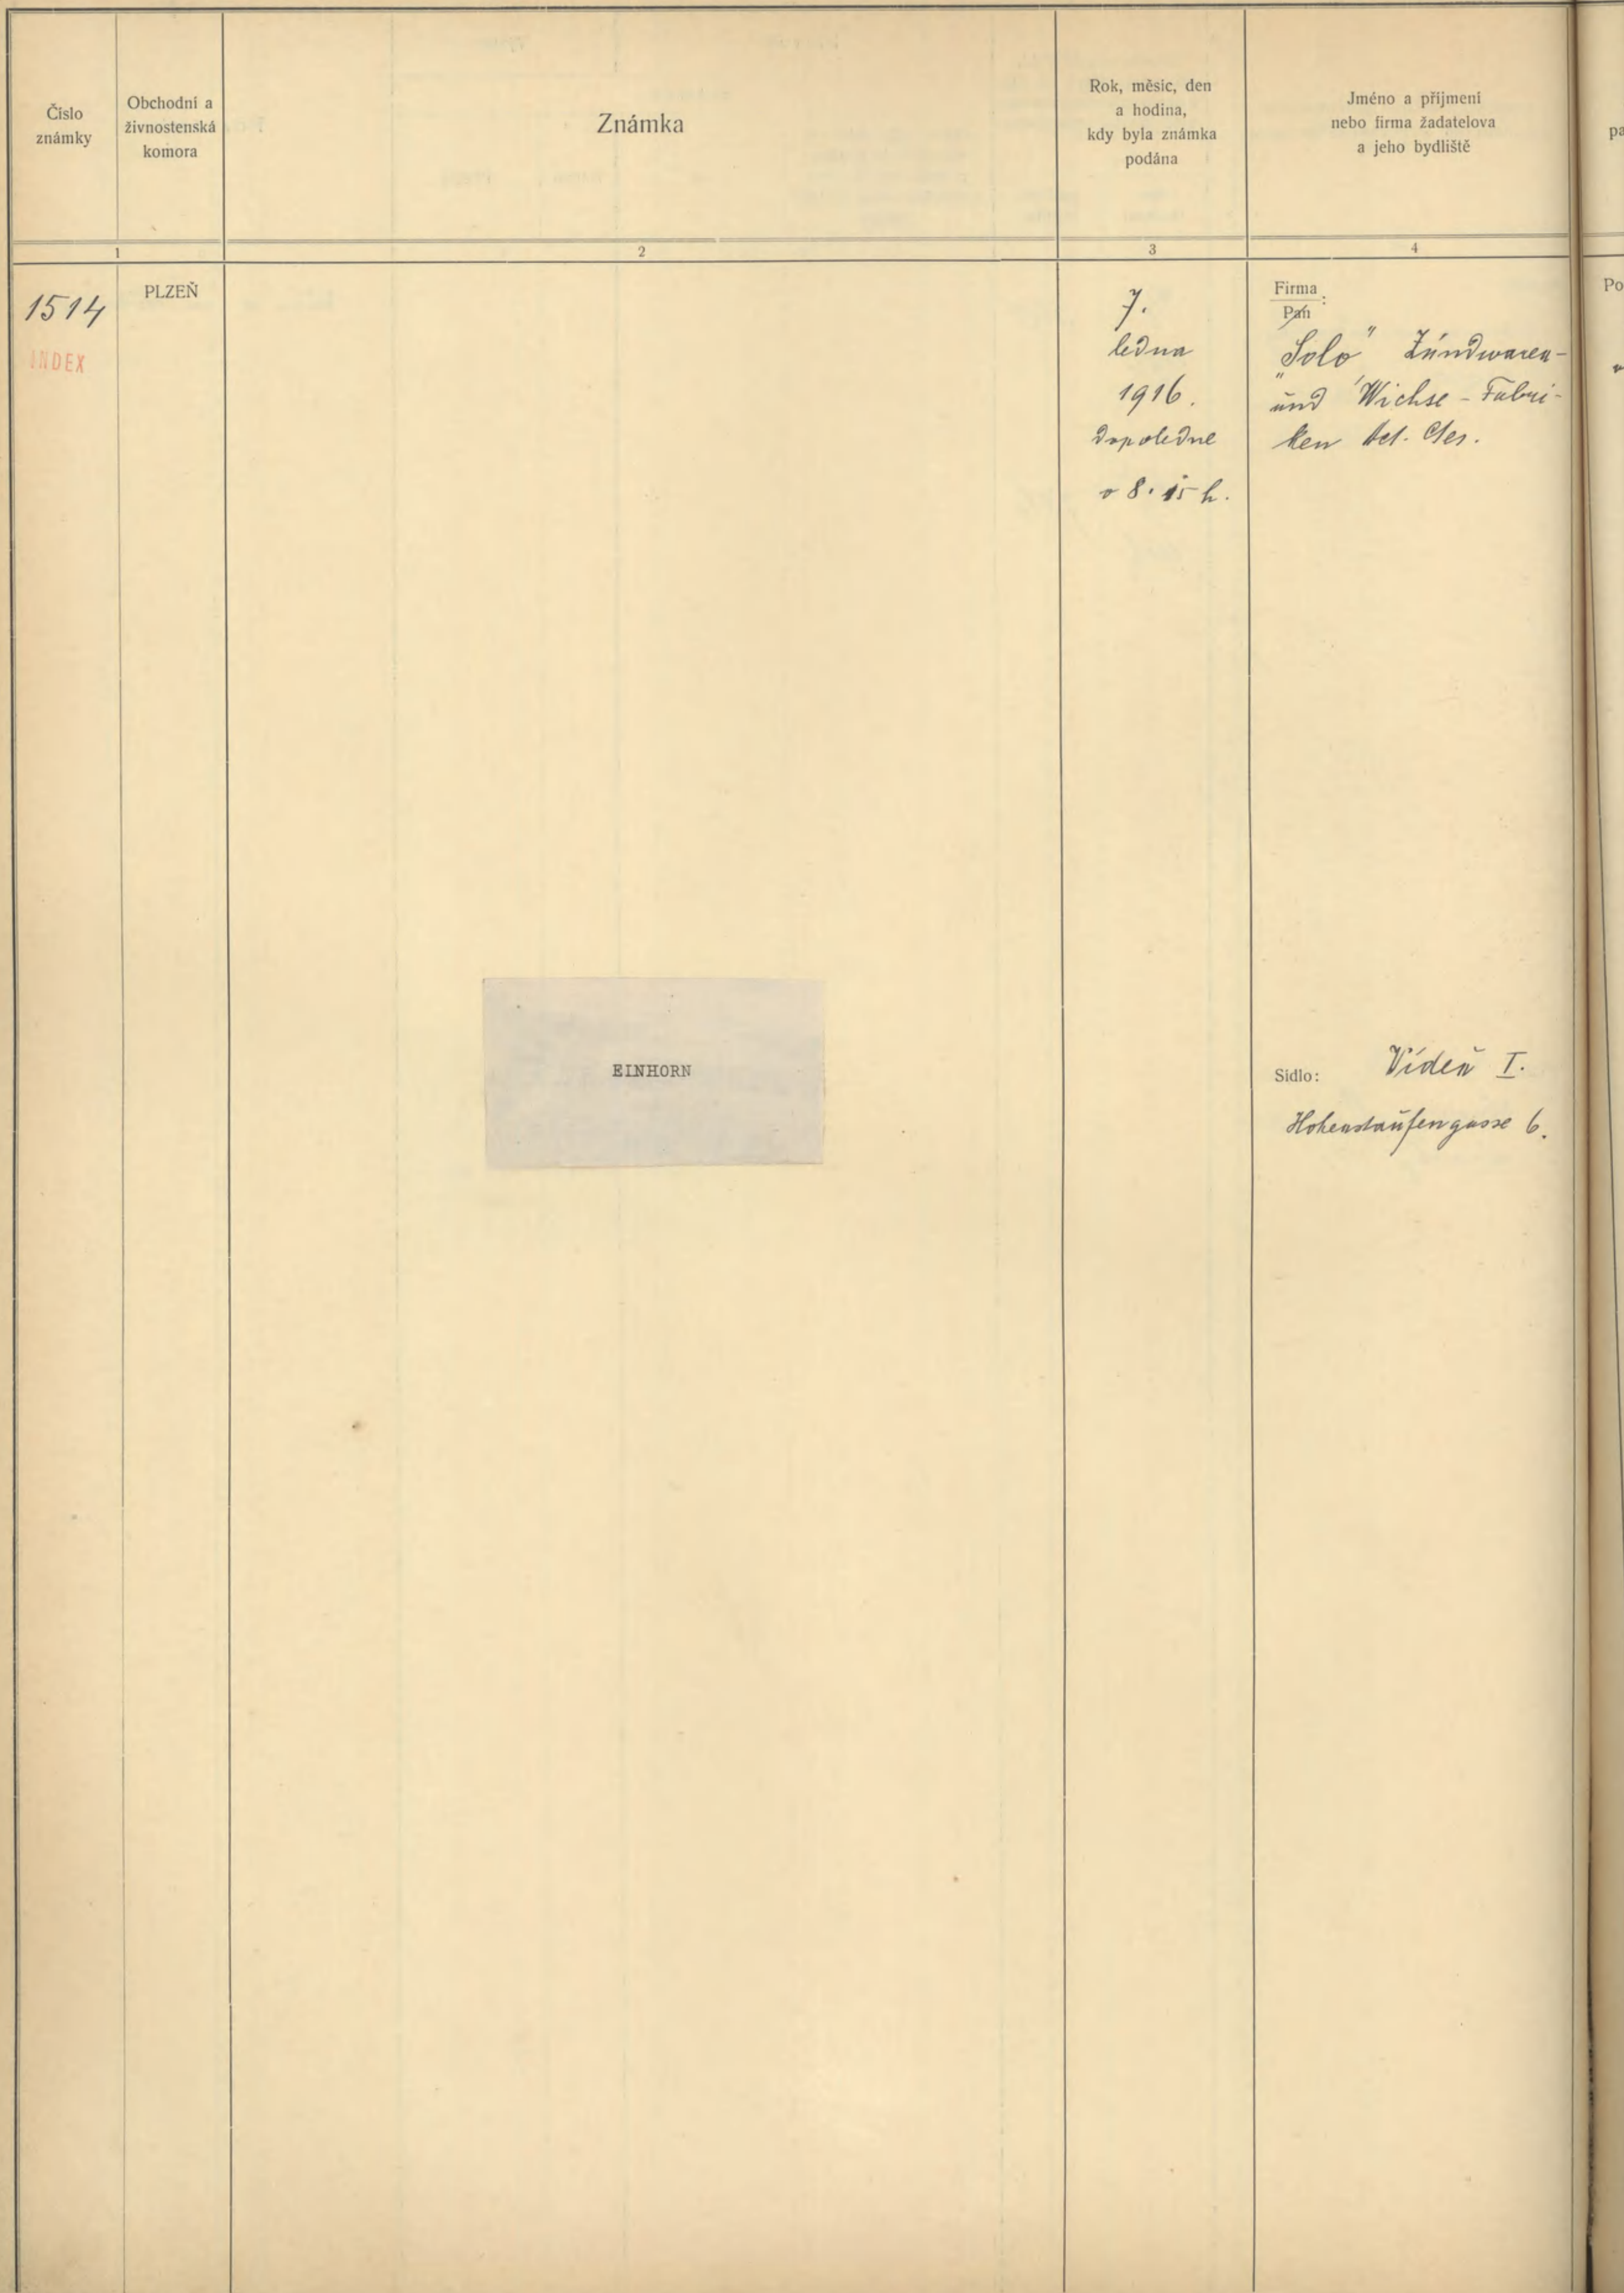 Číslo
známky
Obchodní a
živnostenská
komora
Známka
Rok, měsíc, den
a hodina,
kdy byla známka
podána
Jméno a příjmení
nebo firma žadatelova
a jeho bydliště
1
2
3
4
1514
INDEX
PLZEŇ
7.
ledna
1916.
dopoledne
o 8.15 h.
Firma
Pan :
„Solo" Zündwaren-
und Wichse-Fabri-
ken Act. Ges.
EINHORN
Sídlo: Vídeň I.
Hohenstaufengasse 6.
pa
Po